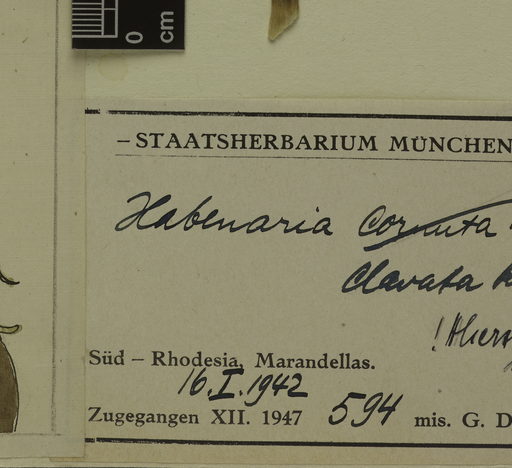 0
cm
– STAATSHERBARIUM MÜNCHEN
Habenaria Cornuta
Clavata
Süd – Rhodesia, Marandellas.
16.I.1942
Zugegangen XII. 1947 594 mis. G. D